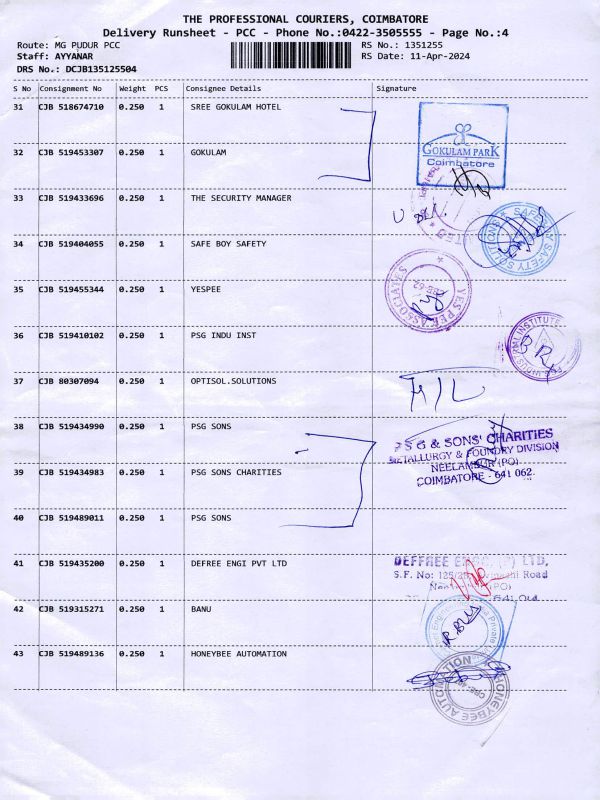 THE PROFESSIONAL COURIERS, COIMBATORE
Delivery Runsheet - PCC - Phone No.:0422-3505555 - Page No.:4
Route: MG PUDUR PCC RS No.: 1351255
Staff: AYYANAR RS Date: 11-Apr-2024
DRS No.: DCJB135125504
S No Consignment No Weight PCS Consignee Details Signature
31 CJB 518674710 0.250 1 SREE GOKULAM HOTEL
GOKULAM PARK
Coimbatore
32 CJB 519453307 0.250 1 GOKULAM
33 CJB 519433696 0.250 1 THE SECURITY MANAGER
SAFETY SOLUTIONS
34 CJB 519404055 0.250 1 SAFE BOY SAFETY
35 CJB 519455344 0.250 1 YESPEE
YES PEE ASSOCIATES
36 CJB 519410102 0.250 1 PSG INDU INST
INSTITUTE
37 CJB 80307094 0.250 1 OPTISOL.SOLUTIONS
38 CJB 519434990 0.250 1 PSG SONS
P S G & SONS' CHARITIES
METALLURGY & FOUNDRY DIVISION
NEELAMBUR (PO)
COIMBATORE - 641 062.
39 CJB 519434983 0.250 1 PSG SONS CHARITIES
40 CJB 519489011 0.250 1 PSG SONS
41 CJB 519435200 0.250 1 DEFREE ENGI PVT LTD
DEFFREE ENGG. (P) LTD,
S.F. No: Road
42 CJB 519315271 0.250 1 BANU
43 CJB 519489136 0.250 1 HONEYBEE AUTOMATION
HONEYBEE AUTOMATION